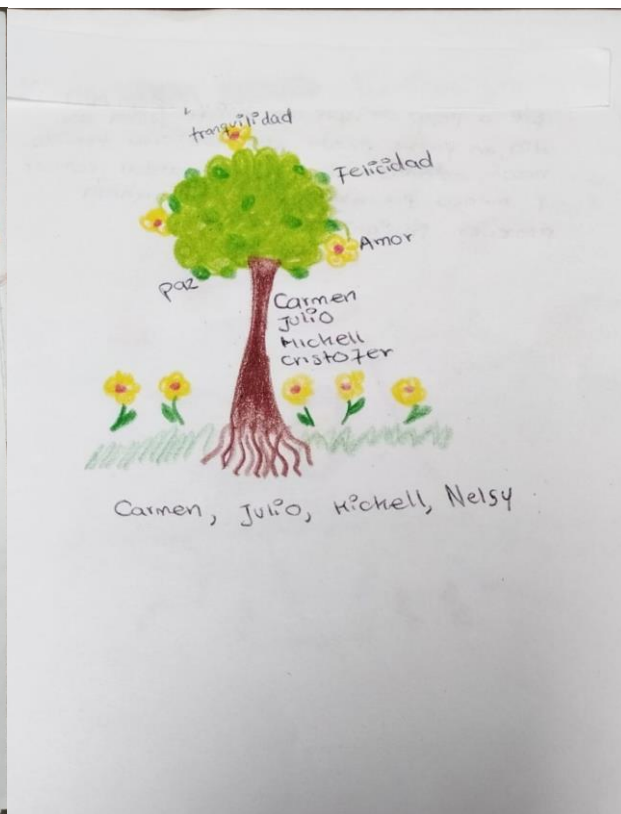 tranquilidad
Felicidad
Amor
paz
Carmen
Julio
Michell
Cristofer
Carmen, Julio, Michell, Nelsy